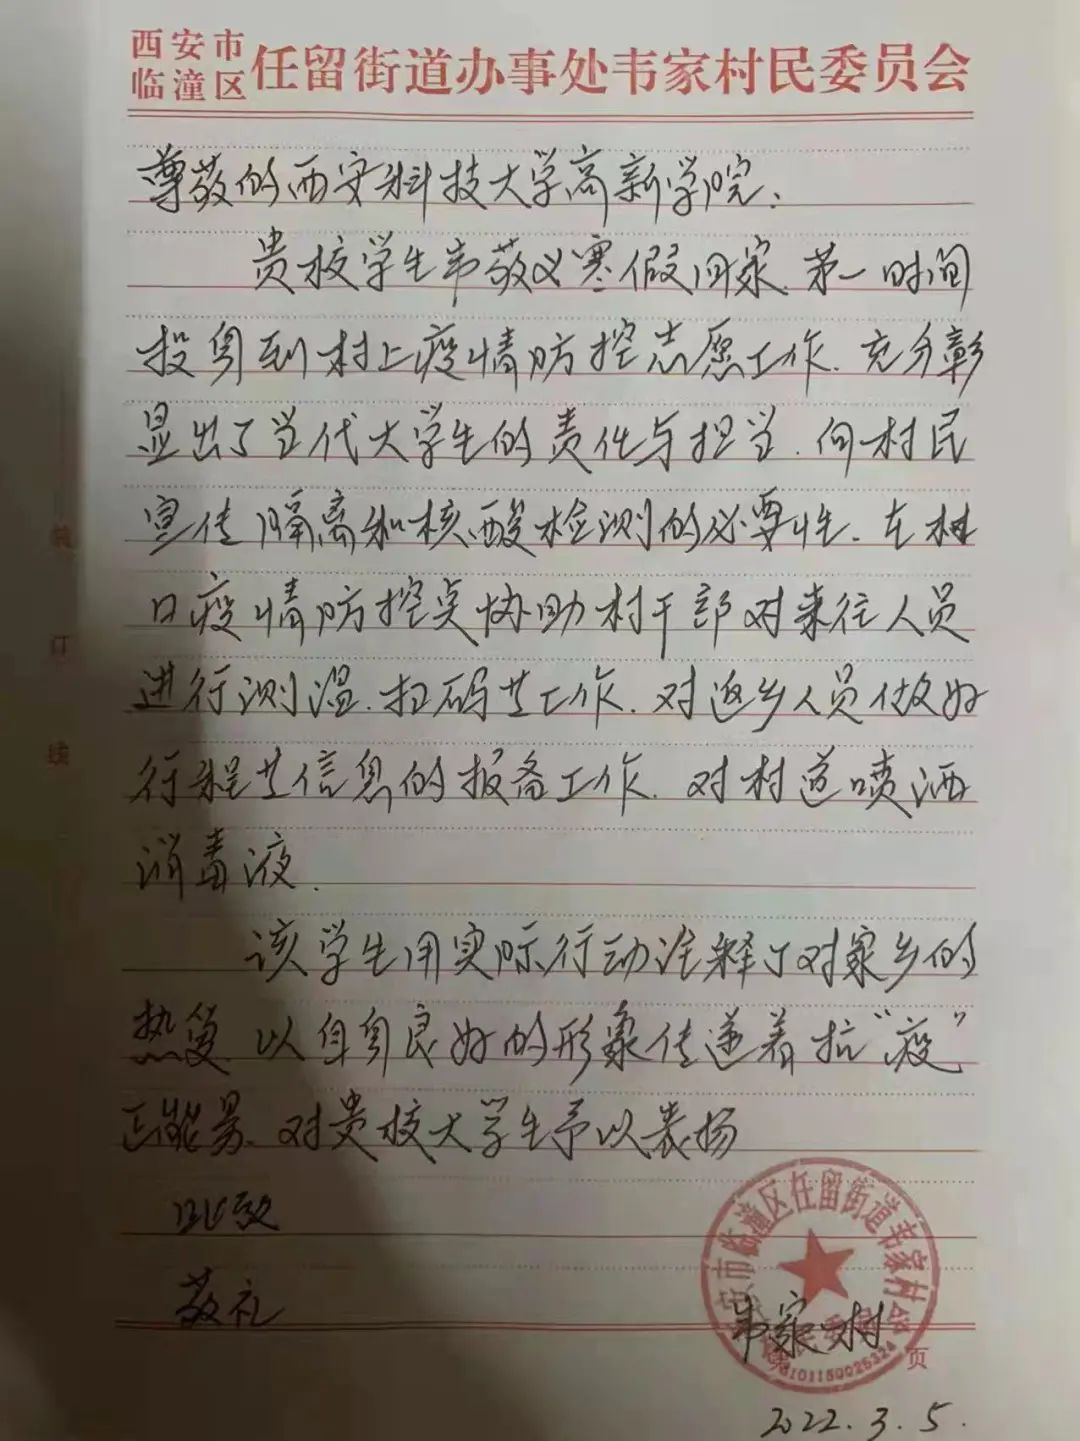 西安市
临潼区 任留街道办事处韦家村民委员会
尊敬的西安科技大学高新学院:
贵校学生韦敬义寒假回家.第一时间
投身到村上疫情防控志愿工作.充分彰
显出了当代大学生的责任与担当.向村民
宣传隔离和核酸检测的必要性.在村
口疫情防控点协助村干部对来往人员
进行测温.扫码等工作.对返乡人员做好
行程等信息的报备工作.对村道喷洒
消毒液.
该学生用实际行动诠释了对家乡的
热爱.以自身良好的形象传递着抗“疫”
正能量.对贵校大学生予以表扬
此致
敬礼
韦家村
页
2022.3.5.
装
订
线
安市临潼区任留街道韦家村
村民委员会
6101150025324